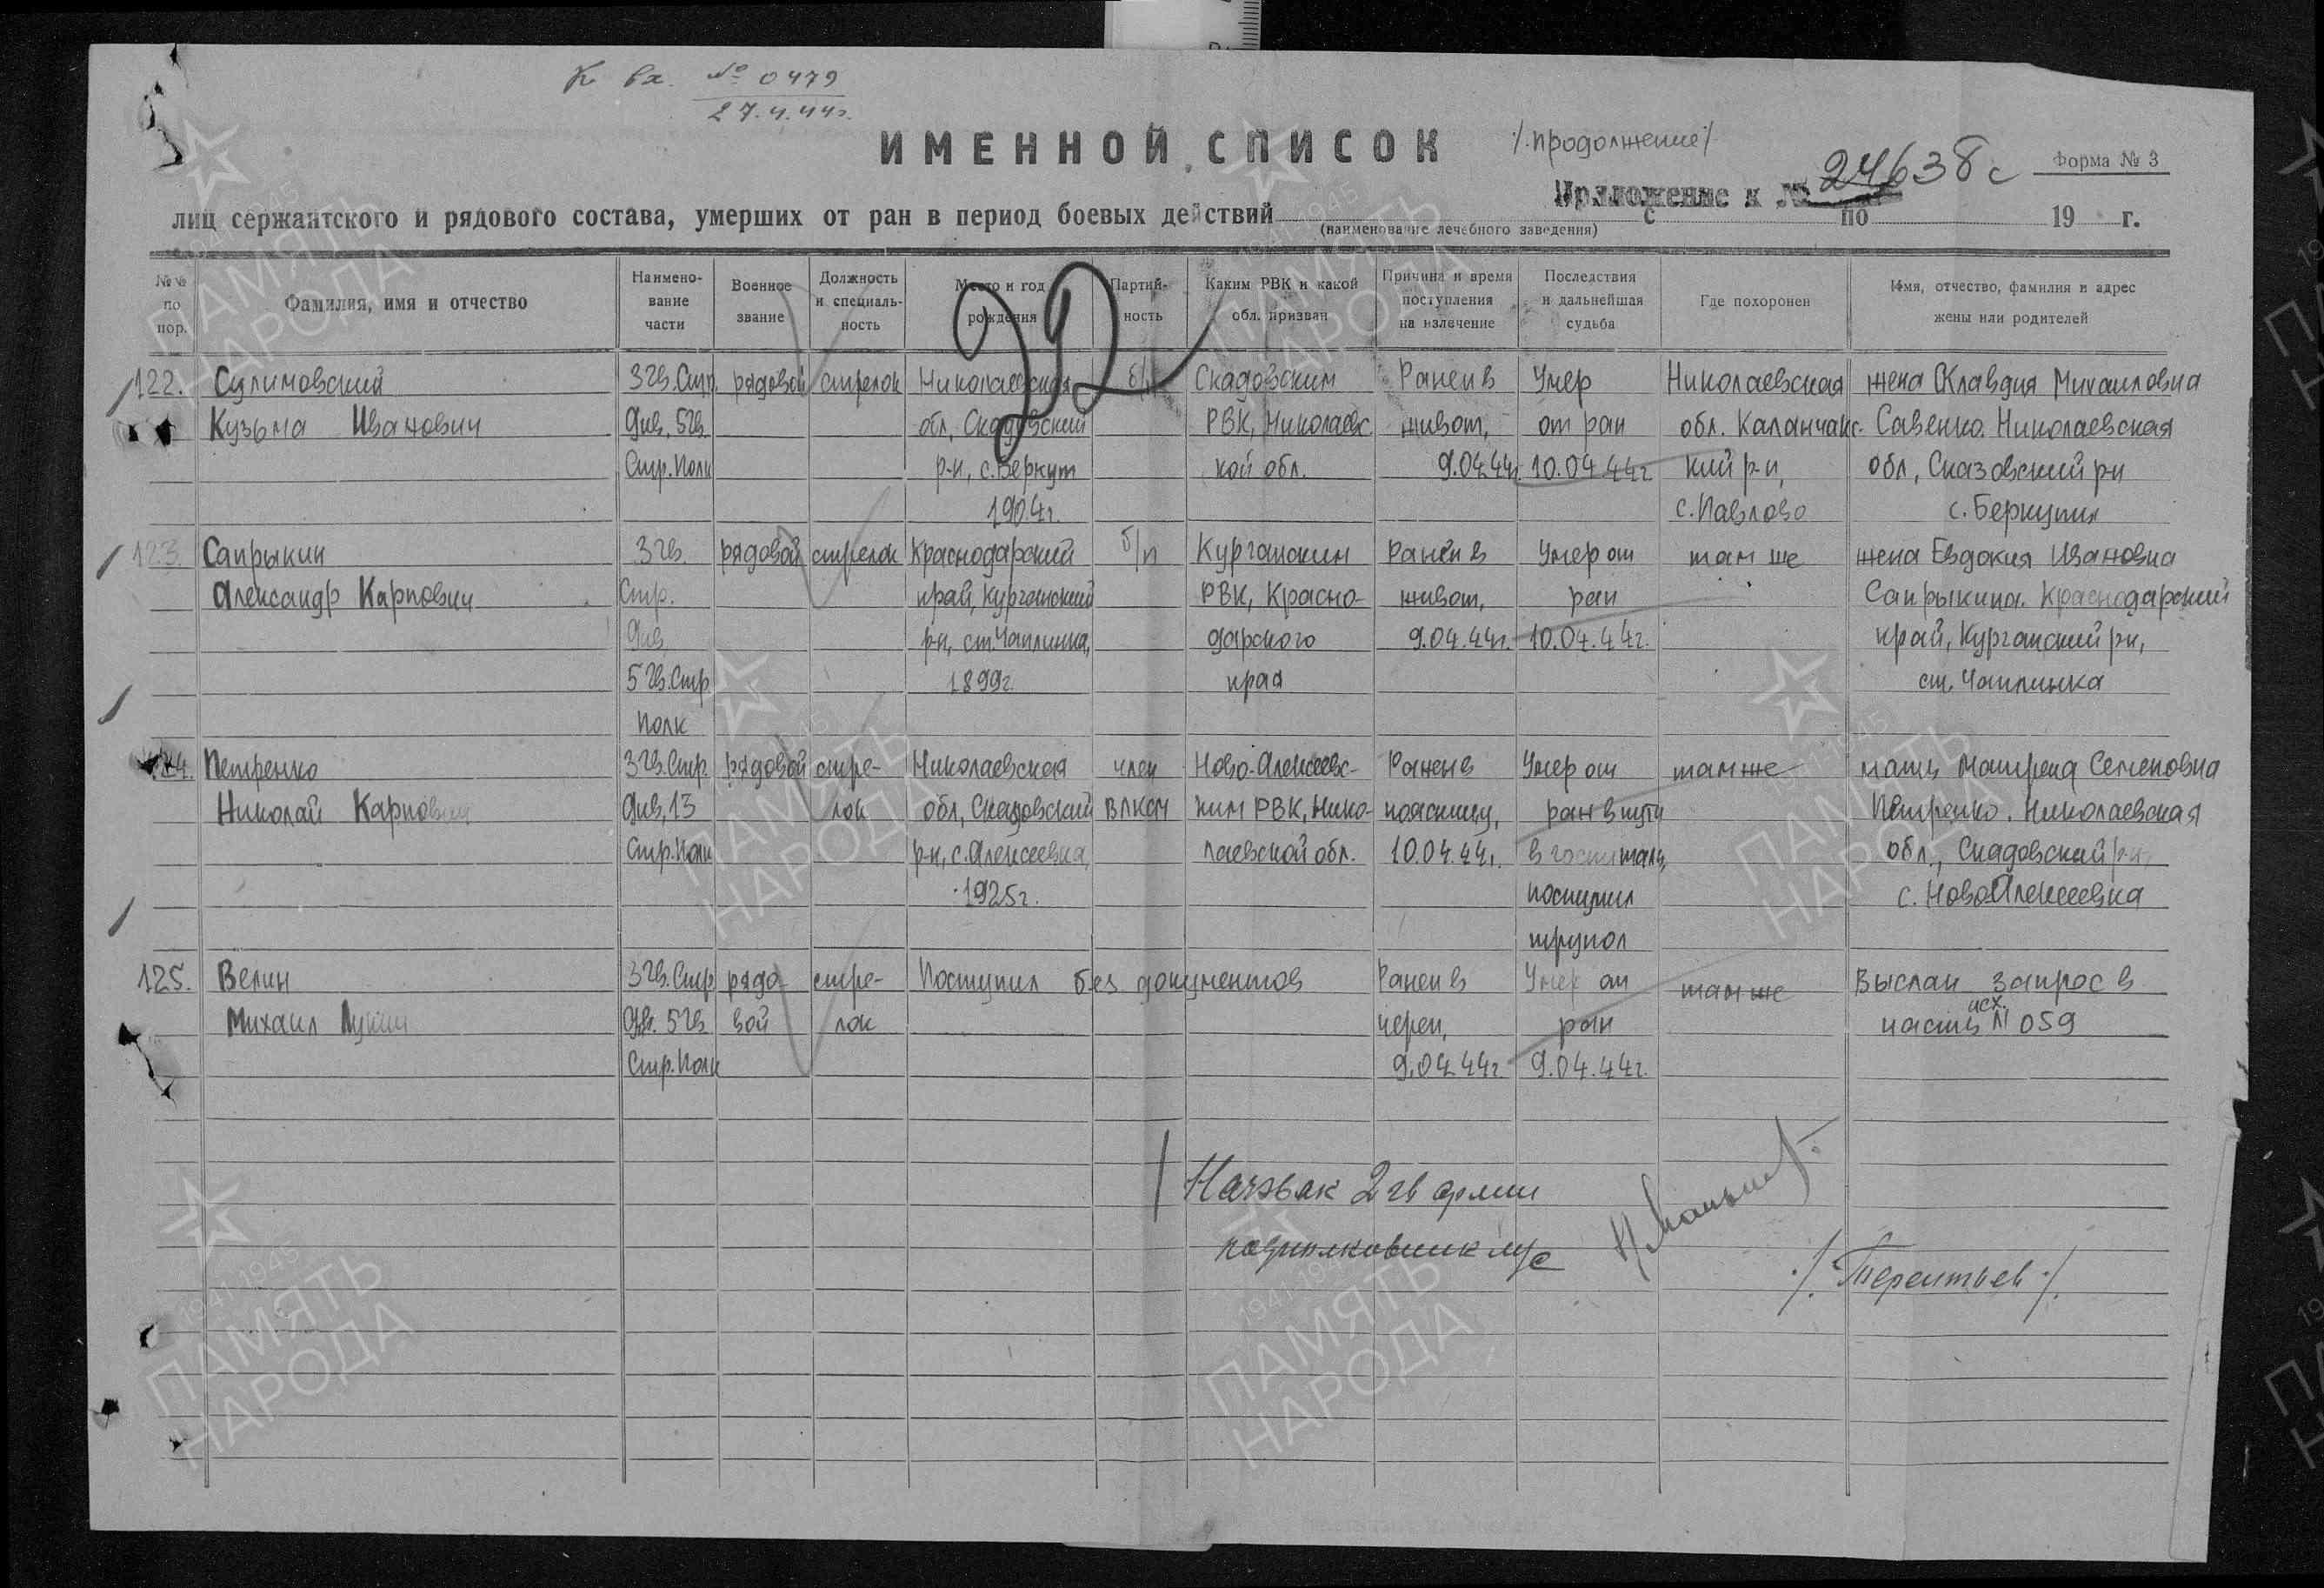 К вх. № 0479
27.4.44г.
ИМЕННОЙ СПИСОК
/.продолжение/
24638с
Форма № 3
Приложение к №
лиц сержантского и рядового состава, умерших от ран в период боевых действий с по 19 г.
(наименование лечебного заведения)
№ № по пор.
Фамилия, имя и отчество
Наименование части
Военное звание
Должность и специальность
Место и год рождения
Партийность
Каким РВК и какой обл. призван
Причина и время поступления на излечение
Последствия и дальнейшая судьба
Где похоронен
Имя, отчество, фамилия и адрес жены или родителей
32
122. Сулимовский 3 Гв. Стр. рядовой стрелок Николаевская б/п Скадовским Ранен в Умер Николаевская жена Клавдия Михайловна
Кузьма Иванович Див, 5 Гв. обл, Скадовский РВК, Николаевс живот, от ран обл. Каланчакс- Савенко. Николаевская
Стр. Полк р-н, с. Беркут кой обл. 9.04.44г. 10.04.44г. кий р-н, обл, Сказовский рн
1904г. с. Павлово с. Беркуты
123. Сапрыкин 3 Гв. рядовой стрелок Краснодарский б/п Курганским Ранен в Умер от там же жена Евдокия Ивановна
Александр Карпович Стр. край, Курганский РВК, Красно- живот, ран Сапрыкина. Краснодарский
Див, р-н, ст. Чаплинка, дарского 9.04.44г. 10.04.44г. край, Курганский рн,
5 Гв. Стр 1899г. края ст. Чаплинка
полк
124. Петренко 3 Гв. Стр. рядовой стре- Николаевская член Ново-Алексеевс- Ранен в Умер от там же мать Матрена Семеновна
Николай Карпович Див, 13 лок обл, Скадовский ВЛКСМ ким РВК, Нико- поясницу, ран в пути Петренко. Николаевская
Стр. Полк р-н, с. Алексеевка, лаевской обл. 10.04.44г. в госпиталь, обл., Скадовский р-н,
1925г. поступил с. НовоАлексеевка
трупом
125. Велин 3 Гв. Стр рядо- стре- Поступил без документов Ранен в Умер от там же Выслан запрос в
Михаил Лукич Див. 5 Гв. вой лок череп, ран часть исх. № 059
Стр. Полк 9.04.44г. 9.04.44г.
Начэвак 2 гв армии
подполковник м/с
/.Терентьев./
1941-1945
ПАМЯТЬ
НАРОДА